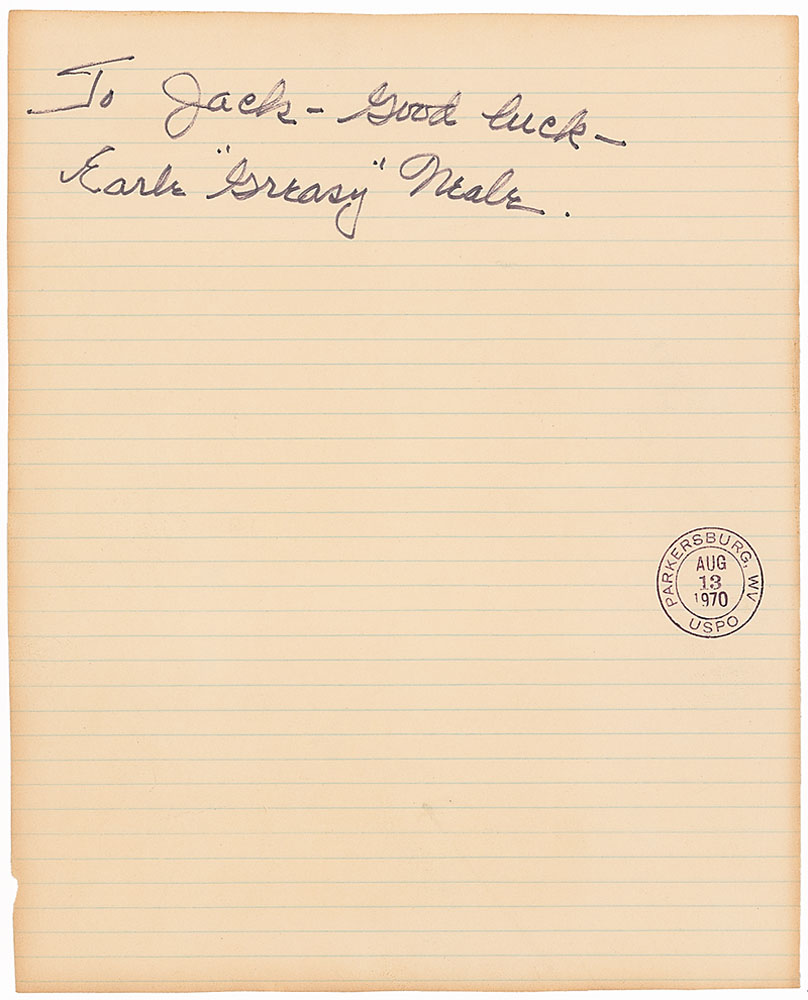 To Jack - Good luck -
Earle "Greasy" Neale.
PARKERSBURG, WV
AUG
13
1970
USPO